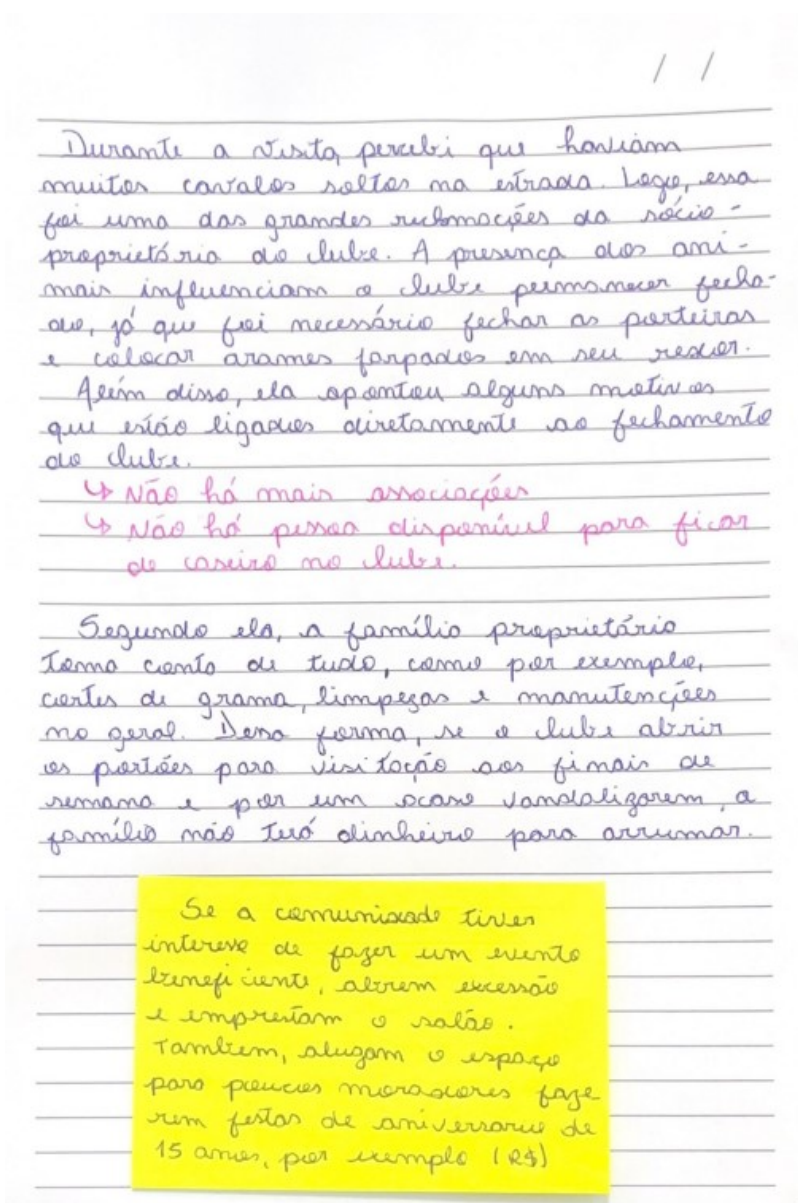 / /
Durante a visita, percebi que haviam
muitos cavalos soltos na estrada. Logo, essa
foi uma das grandes reclamações da sócio-
proprietária do clube. A presença dos ani-
mais influenciam o clube permanecer fecha-
do, já que foi necessário fechar as porteiras
e colocar arames farpados em seu redor.
Além disso, ela apontou alguns motivos
que estão ligados diretamente ao fechamento
do clube.
↳ Não há mais associações
↳ Não há pessoa disponível para ficar
de caseiro no clube.
Segundo ela, a família proprietária
toma conta de tudo, como por exemplo,
cortes de grama, limpezas e manutenções
no geral. Dessa forma, se o clube abrir
os portões para visitação aos finais de
semana e por um acaso vandalizarem, a
família não terá dinheiro para arrumar.
Se a comunidade tiver
interesse de fazer um evento
beneficiente, abrem excessão
e emprestam o salão.
Tambem, alugam o espaço
para poucos moradores faze
rem festas de aniversario de
15 anos, por exemplo (R$)